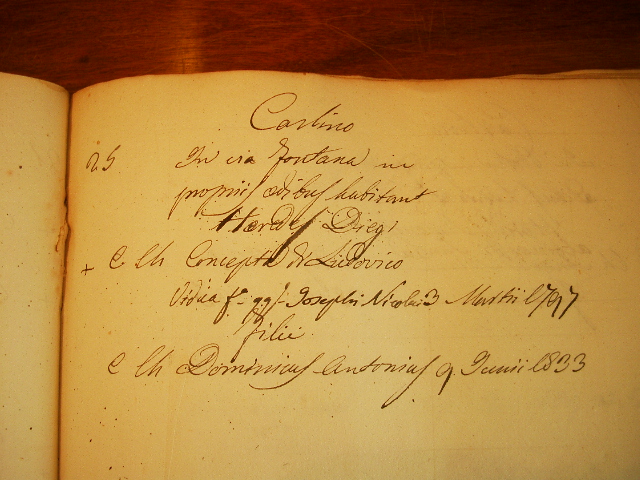 Carlino
25 In via fontana in
propriis ædibus habitant
Hæredes Diegi
+ C Ch Concepta di Ludovico
Vidua Josephi Nicolai 3 Martii 1797
filii
C Ch Dominicus Antonius 9 Junii 1833